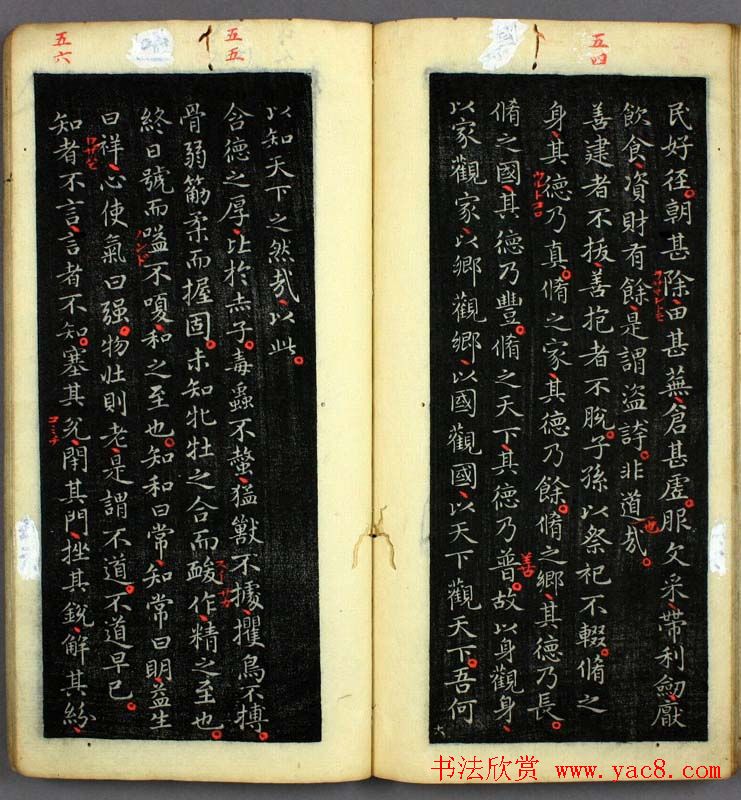 五四
民好径朝甚除田甚蕪倉甚虗服文采帶利劒厭
飲食資財有餘是謂盜誇非道哉
也
善建者不拔善抱者不脫子孫以祭祀不輟脩之
身其德乃真脩之家其德乃餘脩之鄉其德乃長
脩之國其德乃豐脩之天下其德乃普故以身觀身
善
以家觀家以鄉觀鄉以國觀國以天下觀天下吾何
五五
以知天下之然哉以此
含德之厚比於赤子毒蟲不螫猛獸不據攫鳥不搏
骨弱筋柔而握固未知牝牡之合而酸作精之至也
終日號而嗌不嗄和之至也知和曰常知常曰明益生
曰祥心使氣曰强物壯則老是謂不道不道早已
五六
知者不言言者不知塞其兊閇其門挫其銳解其紛
书法欣赏 www.yac8.com